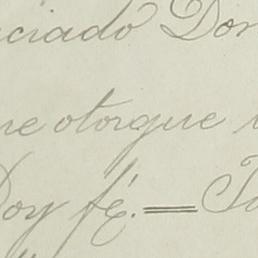 ciado Don
ue otorgue
Doy fé.=